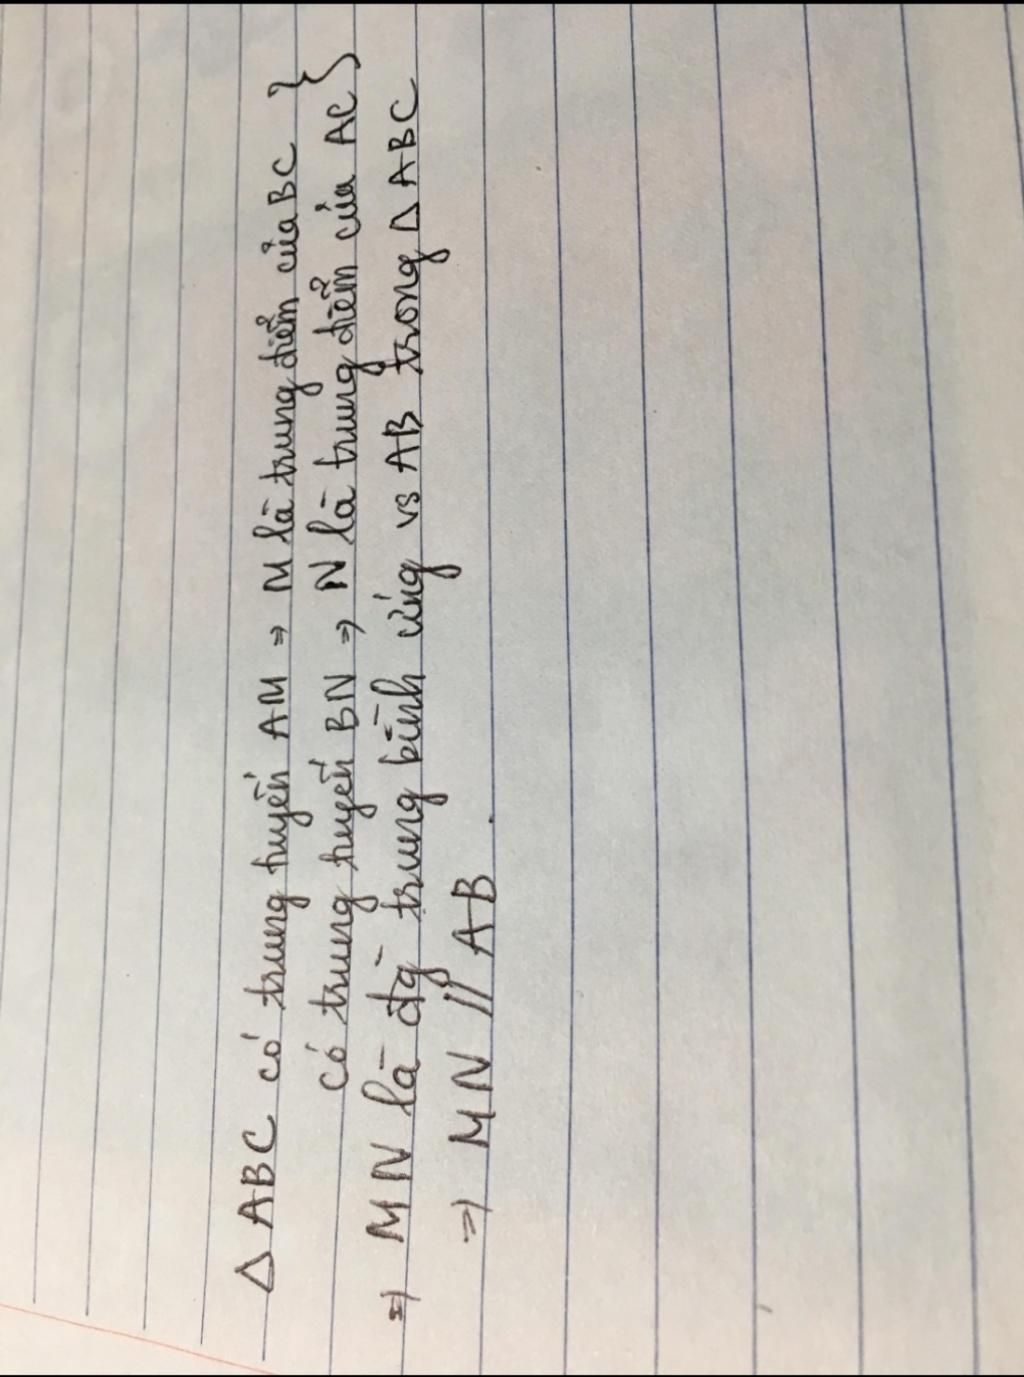 Δ ABC có trung tuyến AM => M là trung điểm của BC }
có trung tuyến BN => N là trung điểm của AC
=> MN là đg` trung bình ứng vs AB trong Δ ABC
=> MN // AB.